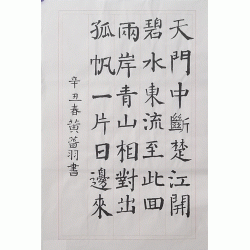 天門中斷楚江開
碧水東流至此回
兩岸青山相對出
孤帆一片日邊來
辛丑春黄蕾羽書